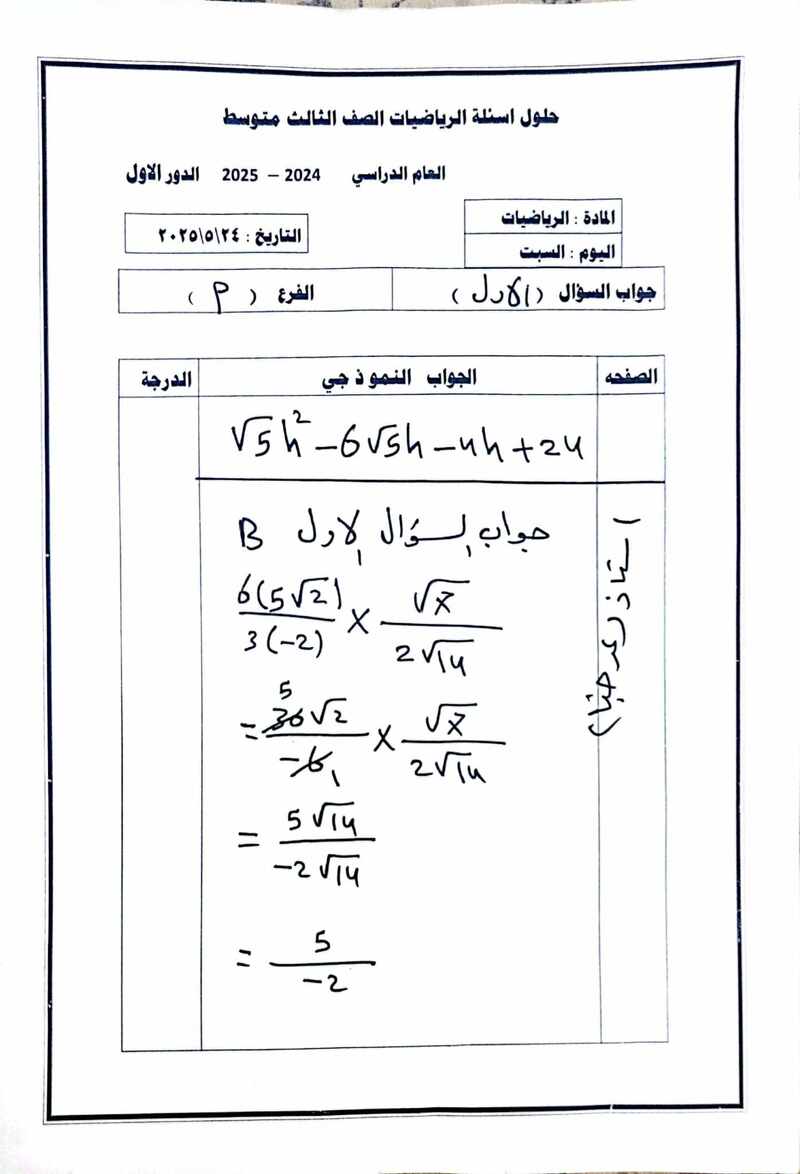 حلول اسئلة الرياضيات الصف الثالث متوسط
العام الدراسي 2024 – 2025 الدور الاول
المادة : الرياضيات
اليوم : السبت
التاريخ : ٢٠٢٥\٥\٢٤
جواب السؤال (الاول) الفرع (م)
الصفحه الجواب النموذجي الدرجة
√5h² – 6√5h – 4h + 24
جواب السؤال الاول B
6(5√2)/3(-2) × √7/2√14
= 5 30√2/-6 1 × √7/2√14
= 5√14/-2√14
= 5/-2
استاذ رعد